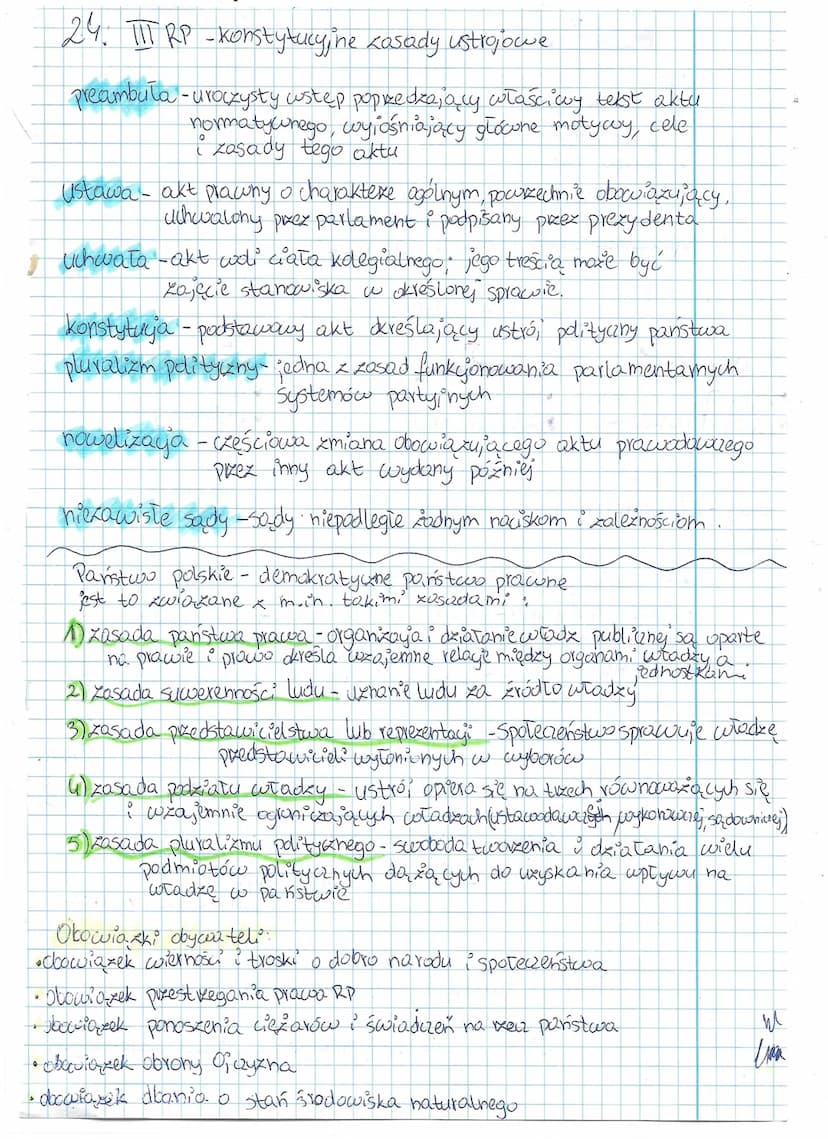 24. III RP - konstytucyjne zasady ustrojowe
preambuła - uroczysty wstęp poprzedzający właściwy tekst aktu
normatywnego, wyjaśniający główne motywy, cele
i zasady tego aktu
ustawa - akt prawny o charakterze ogólnym, powszechnie obowiązujący,
uchwalony przez parlament i podpisany przez prezydenta
uchwała - akt woli ciała kolegialnego; jego treścią może być
zajęcie stanowiska w określonej sprawie.
konstytucja - podstawowy akt określający ustrój polityczny państwa
pluralizm polityczny - jedna z zasad funkcjonowania parlamentarnych
systemów partyjnych
nowelizacja - częściowa zmiana obowiązującego aktu prawodawczego
przez inny akt wydany później
niezawisłe sądy - sądy niepodległe żadnym naciskom i zależnościom.
Państwo polskie - demokratyczne państwo prawne
jest to związane z m.in. takimi zasadami:
1) zasada państwa prawa - organizacja i działanie władz publicznej są oparte
na prawie i prawo określa wzajemne relacje między organami władzy a
jednostkami.
2) zasada suwerenności ludu - uznanie ludu za źródło władzy
3) zasada przedstawicielstwa lub reprezentacji - społeczeństwo sprawuje władzę
przedstawicieli wyłonionych w wyborów
4) zasada podziału władzy - ustrój opiera się na trzech równoważących się
i wzajemnie ograniczających władzach (ustawodawczej, wykonawczej, sądowniczej)
5) zasada pluralizmu politycznego - swoboda tworzenia i działania wielu
podmiotów politycznych dążących do uzyskania wpływu na
władzę w państwie
Obowiązki obywateli:
• obowiązek wierności i troski o dobro narodu i społeczeństwa
• obowiązek przestrzegania prawa RP
• obowiązek ponoszenia ciężarów i świadczeń na rzecz państwa
• obowiązek obrony Ojczyzna
• obowiązek dbania o stań środowiska naturalnego